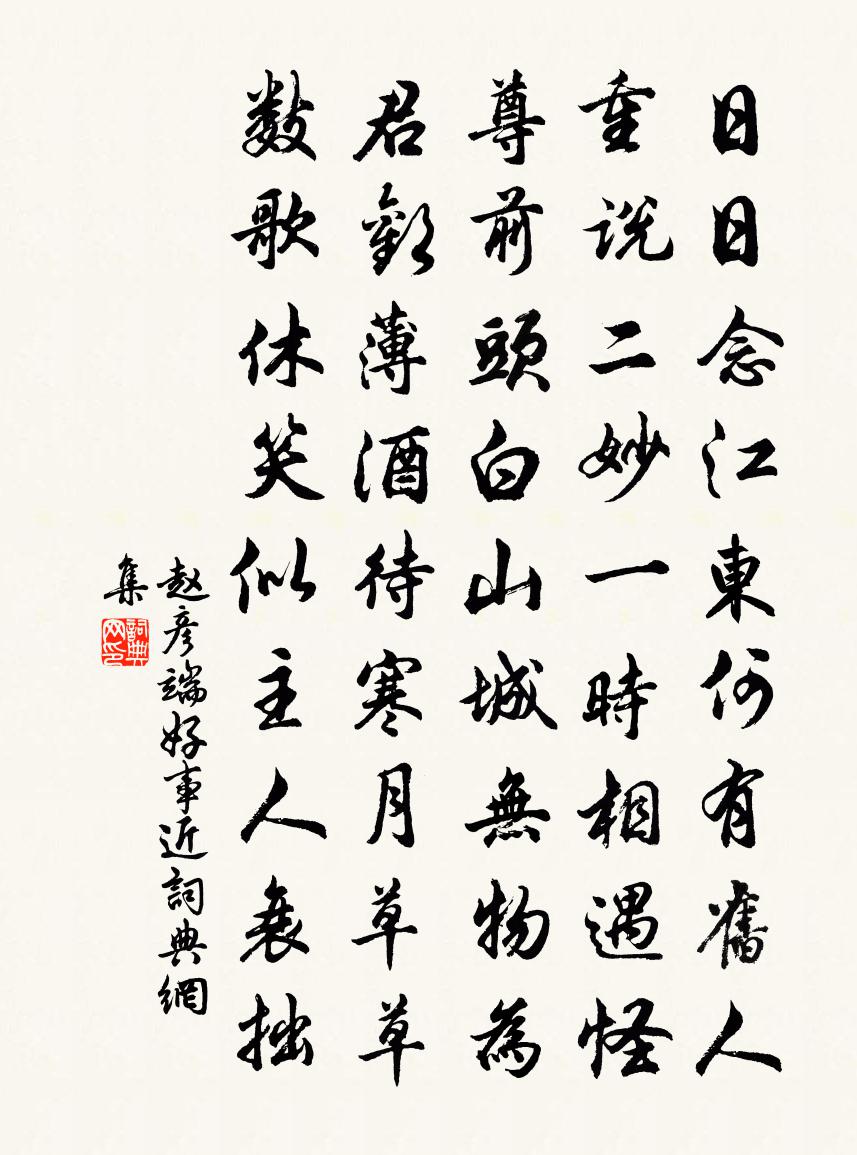 日日念江東何有舊人
重说二妙一時相遇怪
尊前頭白山城無物為
君勸薄酒待寒月草草
数歌休笑似主人衰拙
赵彦端好事近詞典網
集
詞典
网印